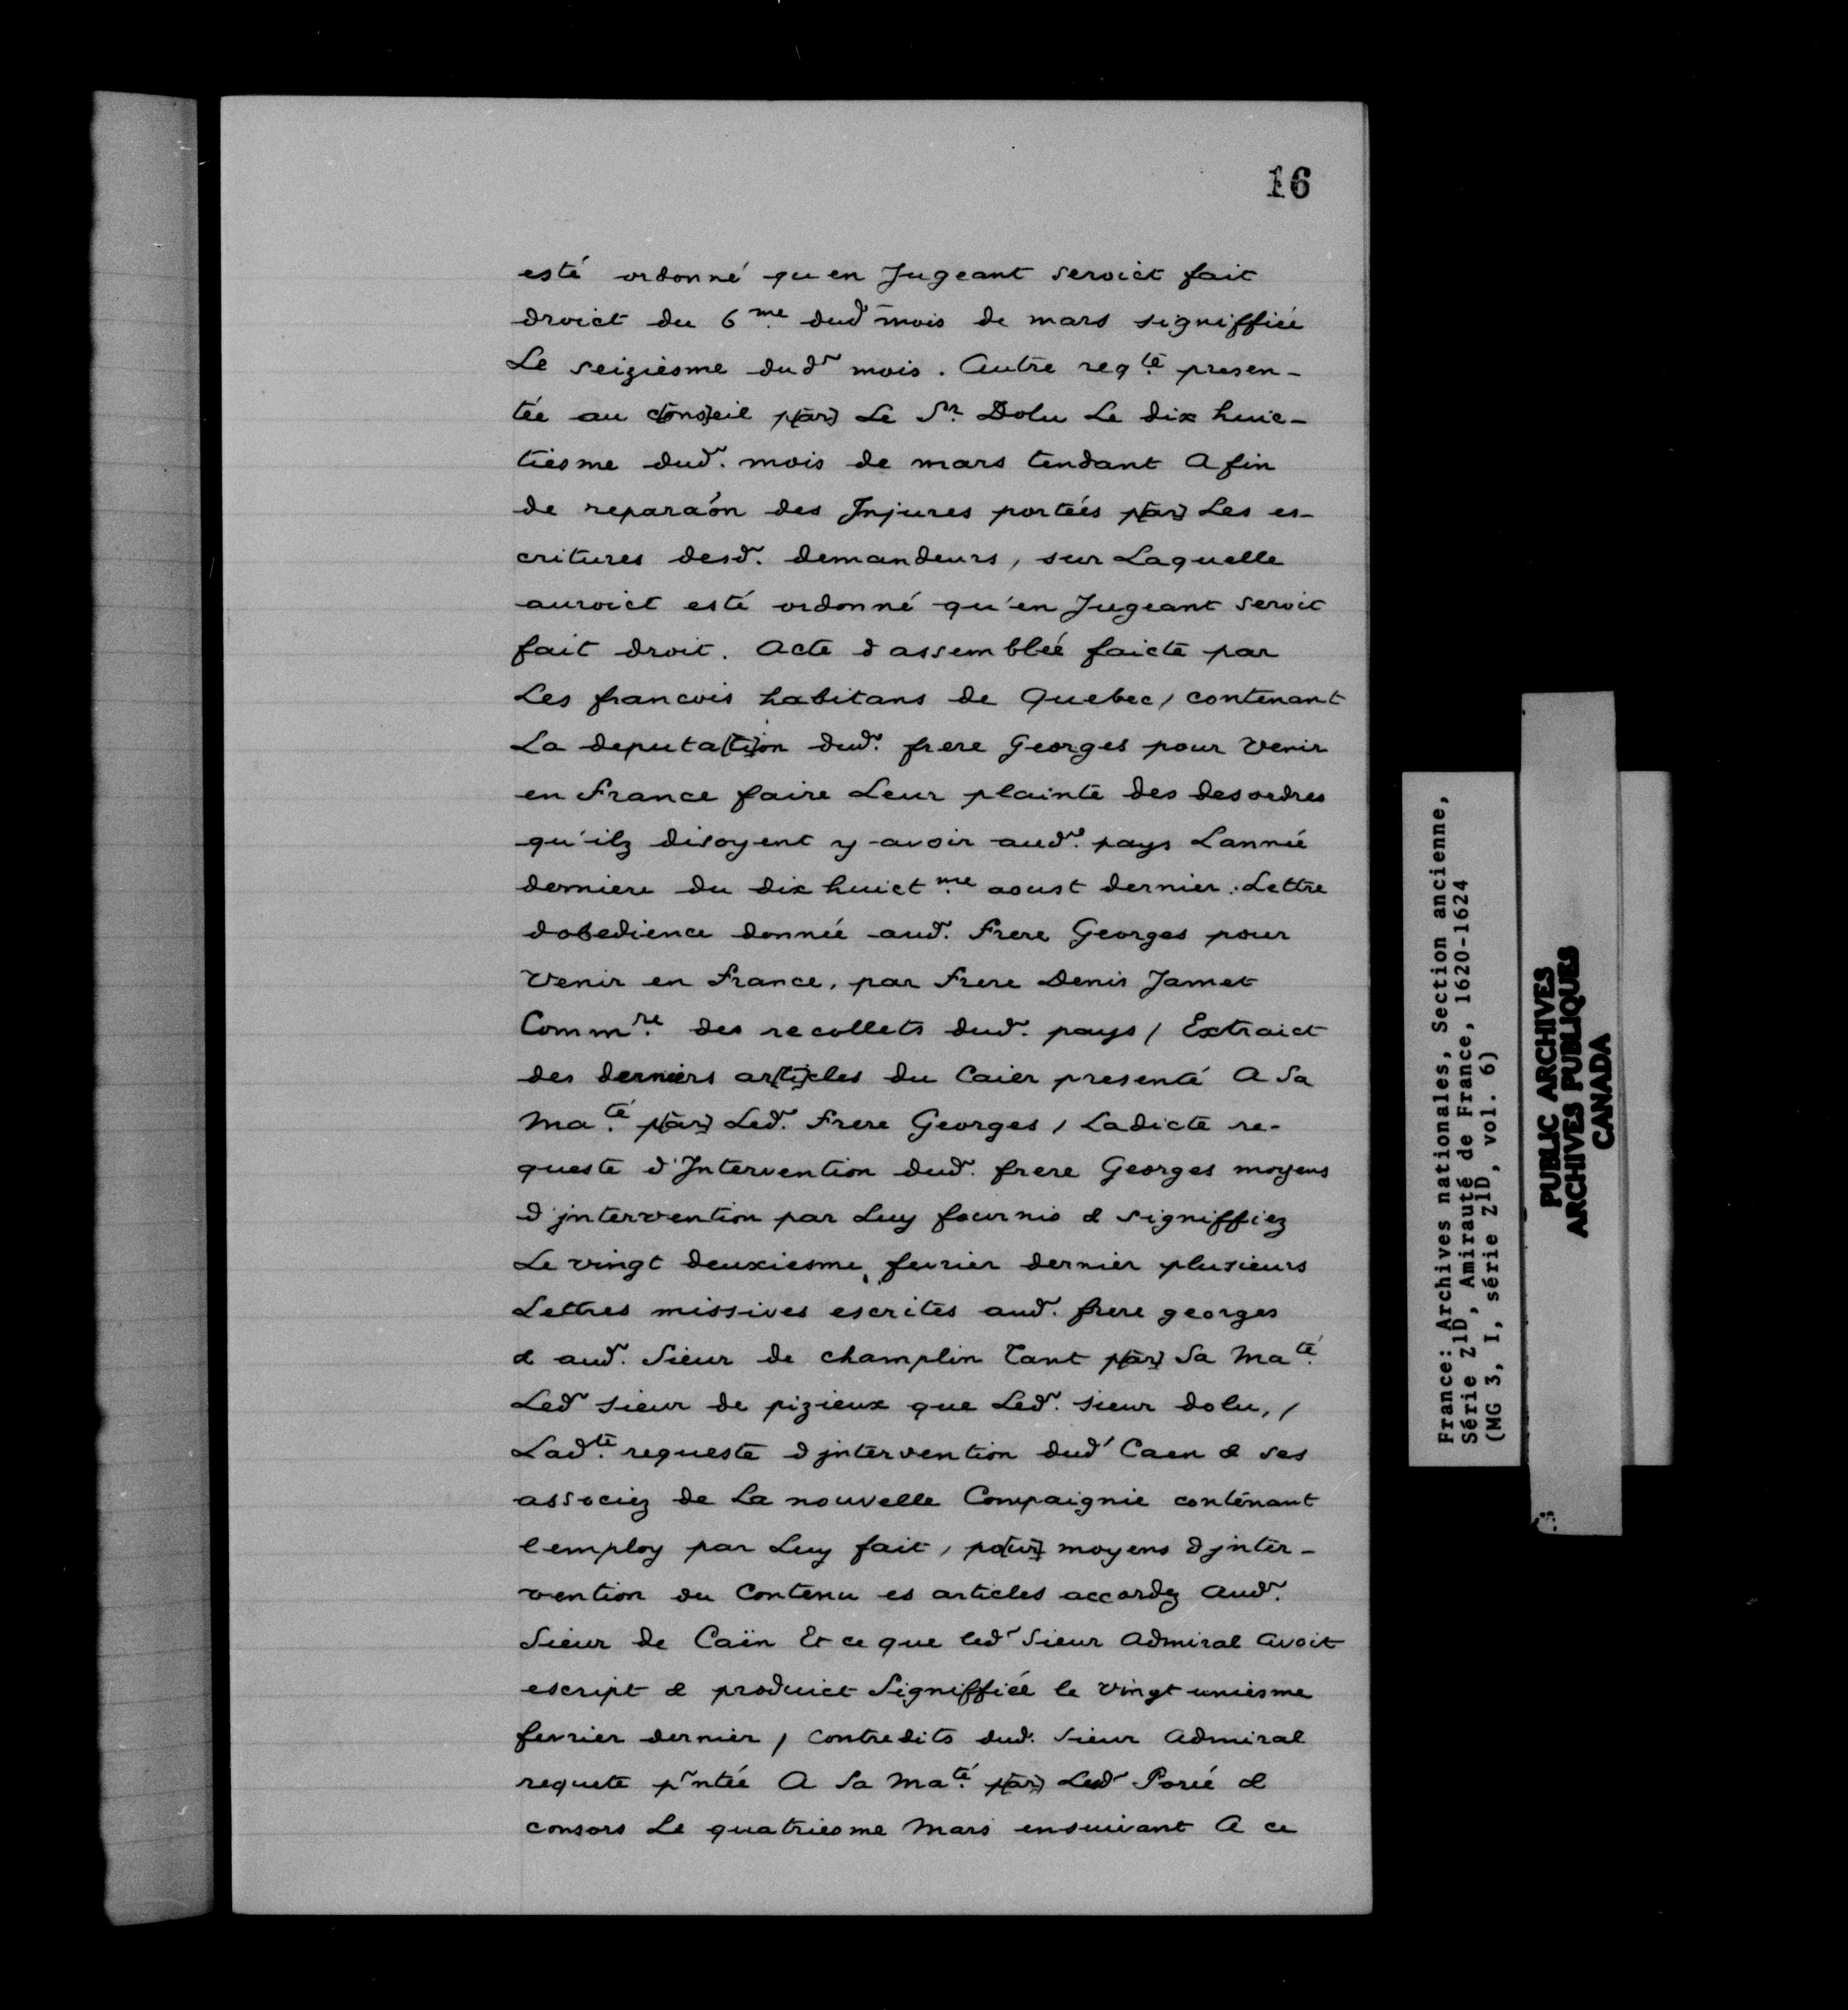 16
esté ordonné qu en Jugeant seroict fait
droict du 6me. dud mois de mars signiffiée
Le seiziesme dud mois. Autre reqte. presen-
tée au c[ons]eil p[ar] Le Sr. Dolu Le dix huic-
tiesme dud. mois de mars tendant A fin
de reparaón des Injures portées p[ar] Les es-
critures desd. demandeurs, sur Laquelle
auroict esté ordonné qu'en Jugeant seroit
fait droit. Acte d assemblée faicte par
Les francois habitans de Quebec, contenant
La deputa[ti]on dud. frere Georges pour venir
en France faire Leur plainte des desordres
qu'ilz disoyent y avoir aud. pays Lannée
derniere du dix huict me. aoust dernier. Lettre
dobedience donnée aud. Frere Georges pour
venir en France, par Frere Denis Jamet
Commre. des recollets dud. pays / Extraict
des derniers ar[ti]cles du Caier presenté A Sa
Maté. p[ar] Led. Frere Georges, Ladicte re-
queste d'Intervention dud. frere Georges moyens
d'jntervention par Luy fournis & signiffiez
Le vingt deuxiesme, feurier dernier plusieurs
Lettres missives escrites aud. frere georges
& aud. Sieur de champlin Tant p[ar] Sa Maté.
Led sieur de pizieux que Led. sieur dolu, /
Ladte. requeste d jntervention dud Caen & ses
associez de La nouvelle Compaignie contenant
l employ par Luy fait, po[ur] moyens d jnter-
vention du Contenu es articles accordz Aud.
Sieur de Caën Et ce que led Sieur Admiral Avoit
escript & produict Signiffiée le vingt uniesme
fevrier dernier, Contredits dud. Sieur Admiral
requete pntée A Sa Maté. p[ar] Led Porée &
consors Le quatriesme Mars ensuivant A ce
France: Archives nationales, Section ancienne,
Série Z1D, Amirauté de France, 1620-1624
(MG 3, I, série Z1D, vol. 6)
PUBLIC ARCHIVES
ARCHIVES PUBLIQUES
CANADA